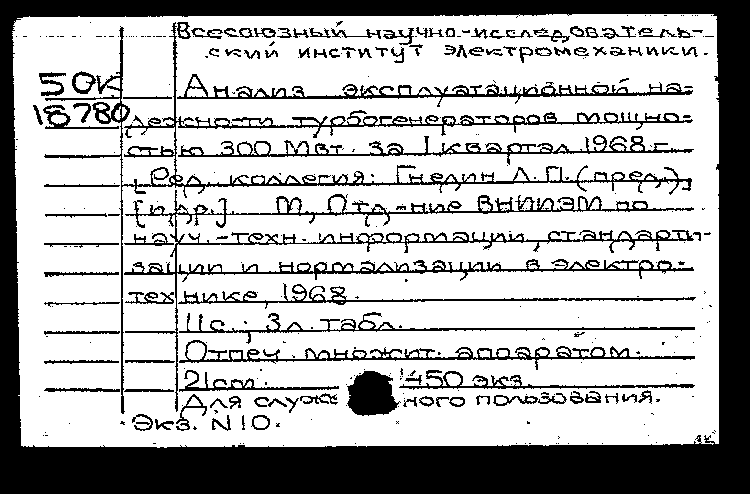 Всесоюзный научно-исследователь-
ский институт электромеханики.
50К
18780
Анализ эксплуатационной на-
дежности турбогенераторов мощно-
стью 300 Мвт. за I квартал 1968 г.
[Ред. коллегия: Гнедин Л.П. (пред.),
[и др.]. М., Отд-ние ВНИИЭМ по
науч.-техн. информации, стандарти-
зации и нормализации в электро-
технике, 1968.
11 с.; 3 л. табл.
Отпеч. множит. аппаратом.
21 см. 450 экз.
Для служебного пользования.
Экз. N 10.